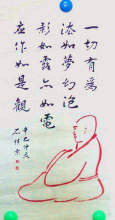 一切有為
法如夢幻泡
影如露亦如電
應作如是觀